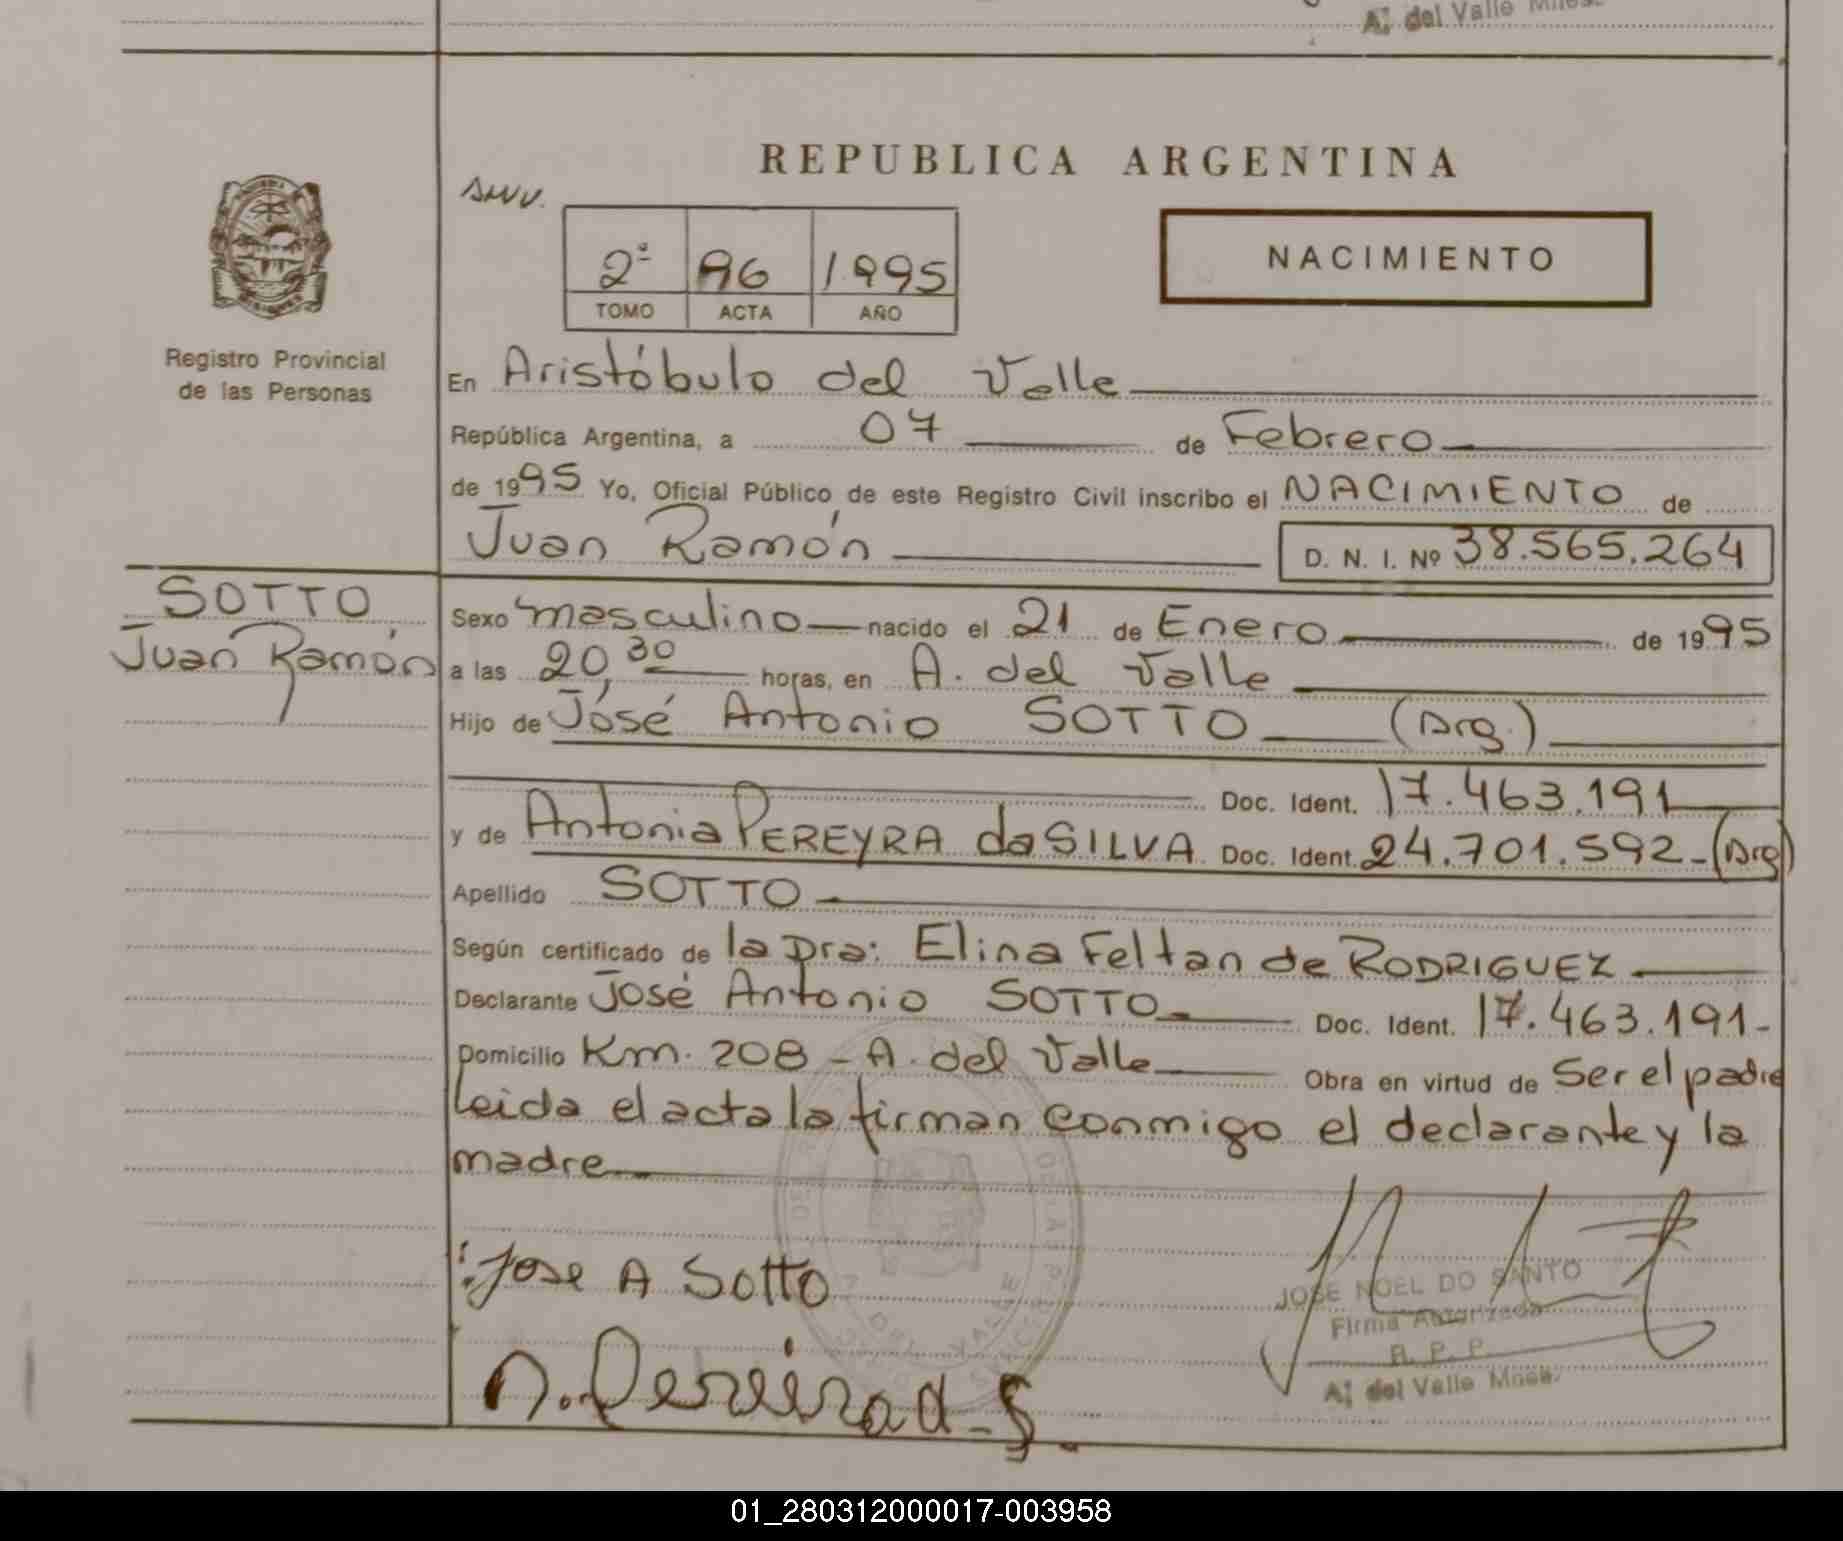 A. del Valle Mnes.
REPUBLICA ARGENTINA
2º 96 1995
TOMO ACTA AÑO
NACIMIENTO
Registro Provincial
de las Personas
En Aristóbulo del Valle
República Argentina, a 07 de Febrero
de 1995 Yo, Oficial Público de este Registro Civil inscribo el NACIMIENTO de
Juan Ramón D. N. I. Nº 38.565.264
SOTTO
Juan Ramón
Sexo masculino nacido el 21 de Enero de 1995
a las 20,30 horas, en A. del Valle
Hijo de José Antonio SOTTO (Arg.)
Doc. Ident. 17.463.191
y de Antonia PEREYRA da SILVA Doc. Ident. 24.701.592-(Arg)
Apellido SOTTO
Según certificado de la Dra: Elina Feltan de RODRIGUEZ
Declarante José Antonio SOTTO Doc. Ident. 17.463.191-
Domicilio Km. 208 - A. del Valle Obra en virtud de Ser el padre
Leida el acta la firman conmigo el declarante y la
madre
Jose A Sotto
JOSE NOEL DO SANTO
Firma Autorizada
R. P. P.
A. del Valle Mnes.
A. Pereira d. S.
01_280312000017-003958